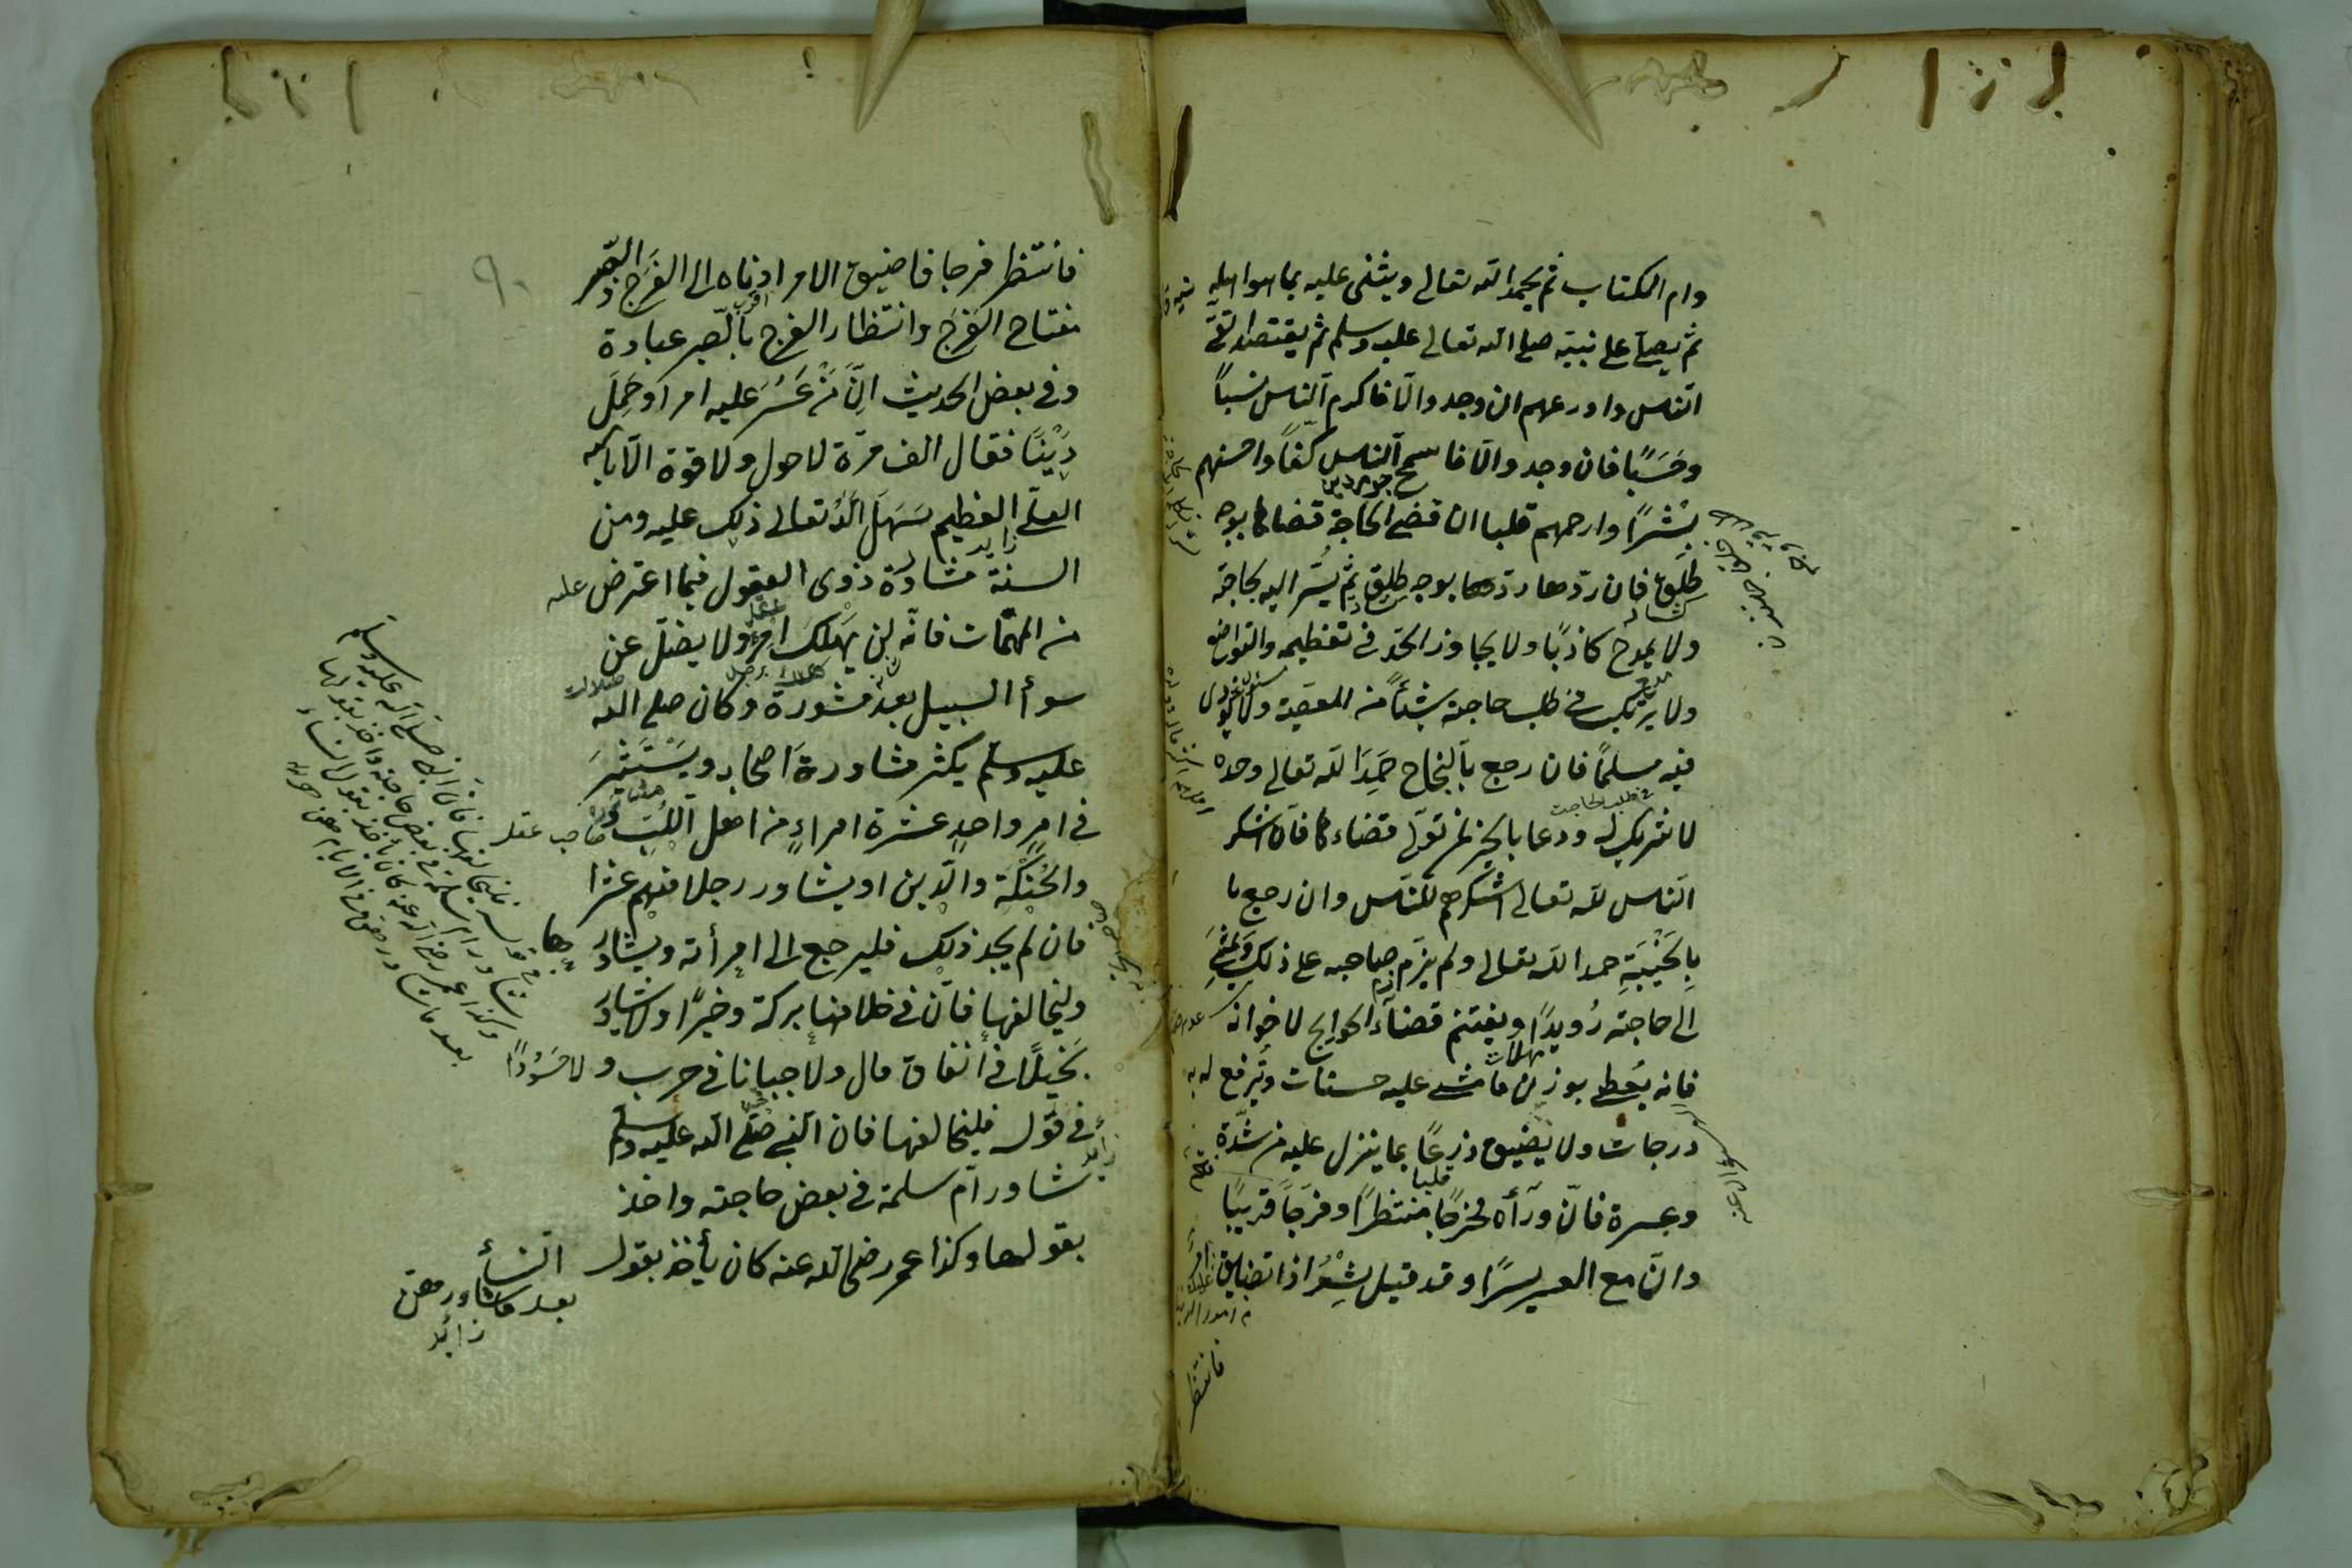 وام الكتاب ثم يحمد الله تعالى ويثنى عليه بما هو اهله
ثم يصلى على نبيّه صلى الله تعالى عليه وسلم ثم يقتصد اتقى
الناس واورعهم ان وجد والّا فاكرم الناس نسباً
وحَسَبًا فان وجد والّا فاسمح الناس كفّاً واحسنهم
بِشْرًا وارحمهم قلبا ان قضى الحاجة قضاها بوجه
طلقٍ فان ردّها ردّها بوجه طلق ثم يُسِرّ اليه بحاجته
ولا يمدح كاذبًا ولا يجاوز الحدّ فى تعظيمه والتواضع
ولا يرتكب فى طلب حاجته شيئاً من المعصية ولا يؤذى
فيه مسلمًا فان رجع بالنجاح حَمِدَ الله تعالى وحده
فى طلب الحاجت
لا شريك له ودعا بالخير لمن تولّى قضاءها فان اشكر
الناس لله تعالى اشكرهم للناس وان رجع با
بالخَيْبَةِ حمد الله تعالى ولم يذم صاحبه على ذلك
الى حاجته رُويدًا ويغتنم قضاء الحوايج لاخوانه
فانه يُعطى بوزن ما مشى عليه حسنات وتُرفع له به
درجات ولا يضيق ذرعًا بما ينزل عليه من شدّة
قلبا
وعسرة فانّ ورآءه مخرجًا منتظرًا وفَرَجًا قريبًا
وانّ مع العسر يسرًا وقد قيل شِعْرُ اذا تضايق امر
فانتظر
٩٠
فانتظر فرجا فاضيق الامر ادناه الى الفَرَج والصّبر
اقرب
مفتاح الفَرَج وانتظار الفرج بالصّبر عبادة
وفى بعض الحديث انّ مَنْ عَسُرَ عليه امر او حَمِلَ
دَيْنًا فقال الف مرّة لا حول ولا قوة الّا بالله
العلّى العظيم سَهَلَ الله تعالى ذلك عليه ومن
زايد
السنة مشاورة ذوى العقول فيما اعترض عليه
من المهمّات فانّه لن يهلك امرؤ ولا يضلّ عن
سوأ السبيل بعد مشورة وكان صلى الله
عليه وسلم يكثر مشاورةَ اصحابه ويَسْتَشيرَ
فى امرٍ واحدٍ عشرة امراءٍ من اهل اللُبّ
صاحب عقل
والحُنْكَة والدّين او يشاور رجلا منهم عشرا
فان لم يجد ذلك فليرجع الى امرأته ويشاورها
وليخالفها فانّ فى خلافها بركة وخيرًا ولا يشاور
بَخيلًا فى انفاق مال ولا جبانا فى حرب ولا حَسُودًا
فى قوله فليخالفها فان النبى صلّى الله عليه وسلم
زايد
شاور ام سلمة فى بعض حاجته واخذ
بقولها وكذا عمر رضى الله عنه كان يأخذ بقول النسأ
بعد ما شاور معهنّ
زائد
فى قوله فليخالفها فان النبى صلى الله عليه وسلم
شاور ام سلمة فى بعض حاجته واخذ بقولها
وكذا عمر رضى الله عنه كان يأخذ بقول النساء